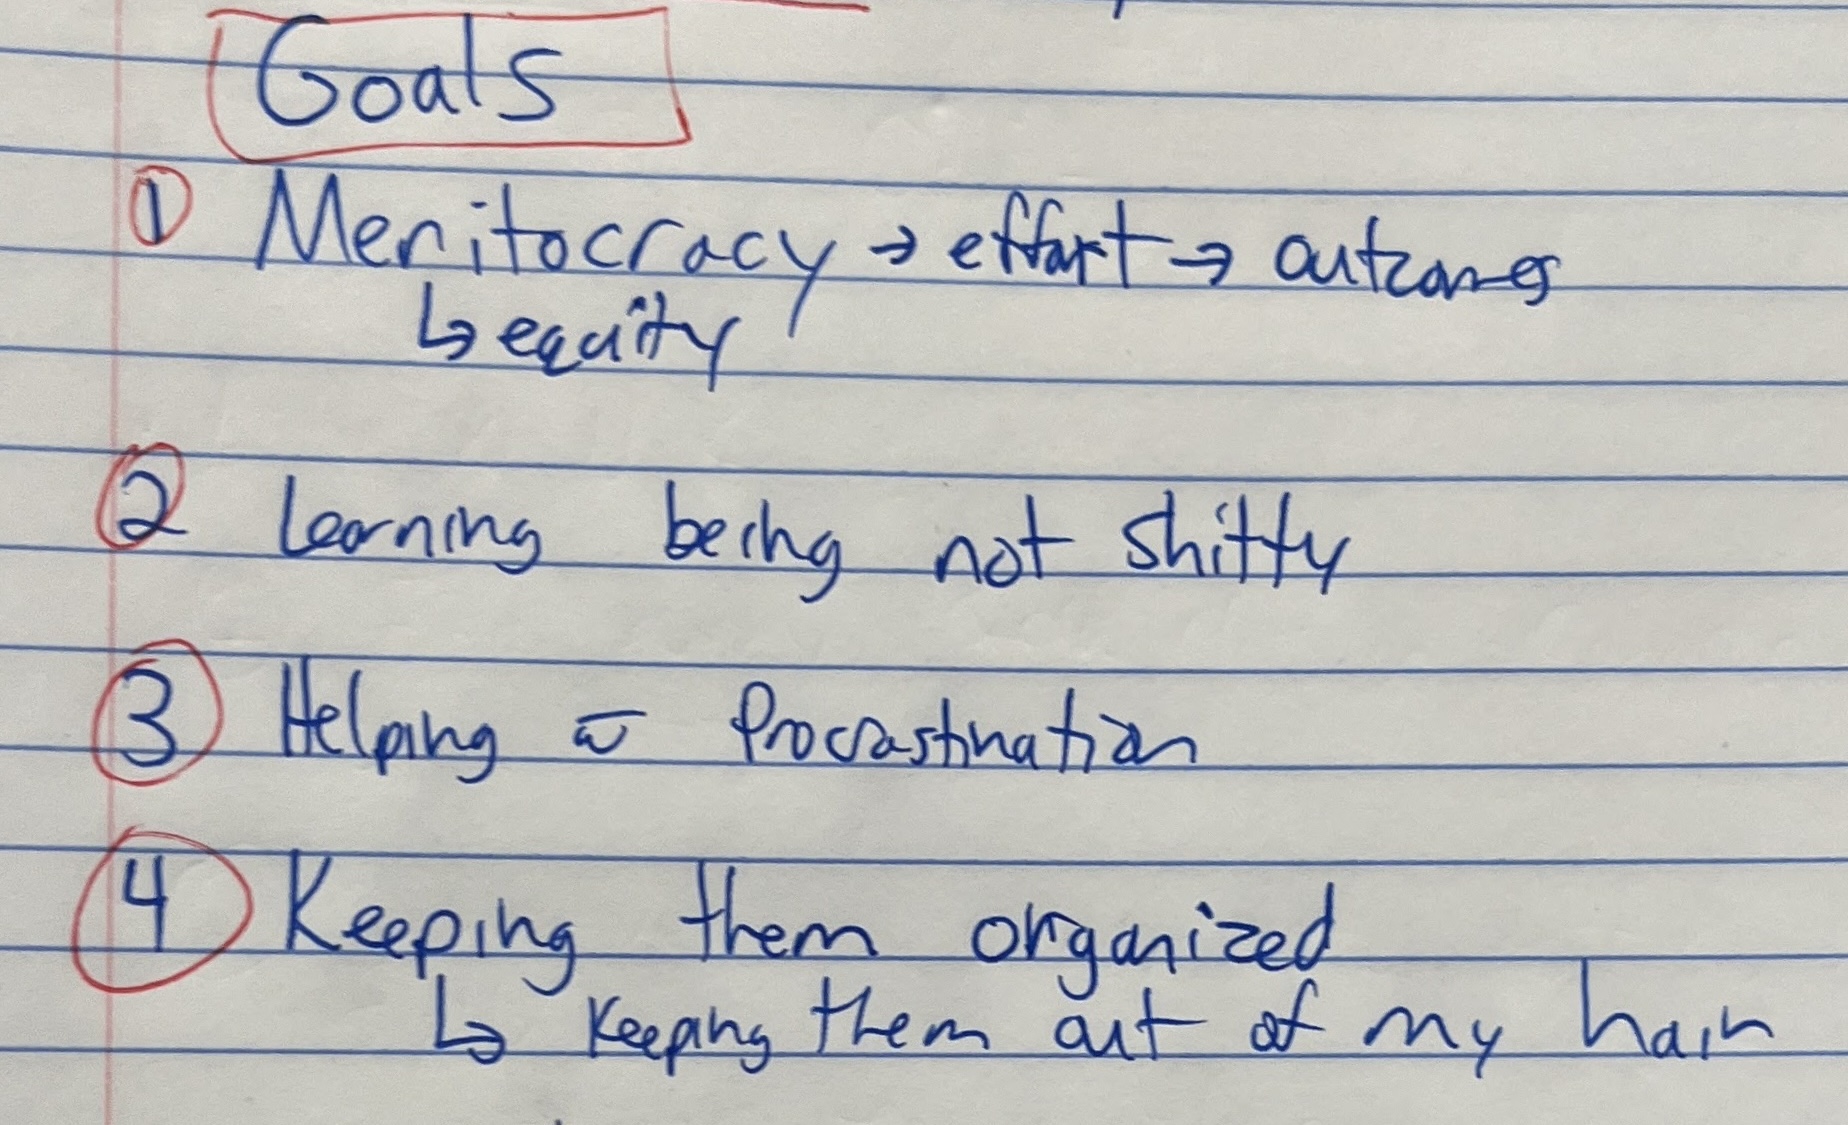 Goals
① Meritocracy → effort → outcomes
↳ equity
② Learning being not shitty
③ Helping w Procrastination
④ Keeping them organized
↳ Keeping them out of my hair